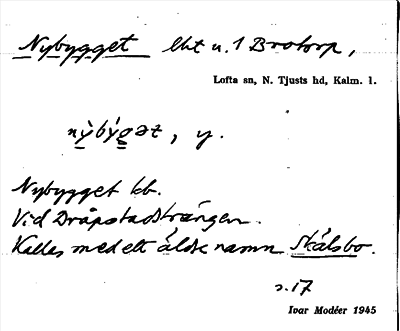 Nybygget lht u. 1 Brotorp,
Lofta sn, N. Tjusts hd, Kalm. l.
nỳbýgət, y.
Nybygget kb.
Vid Dråpstadsträngen.
Kallas med ett äldre namn Skälsbo.
s. 17
Ivar Modéer 1945